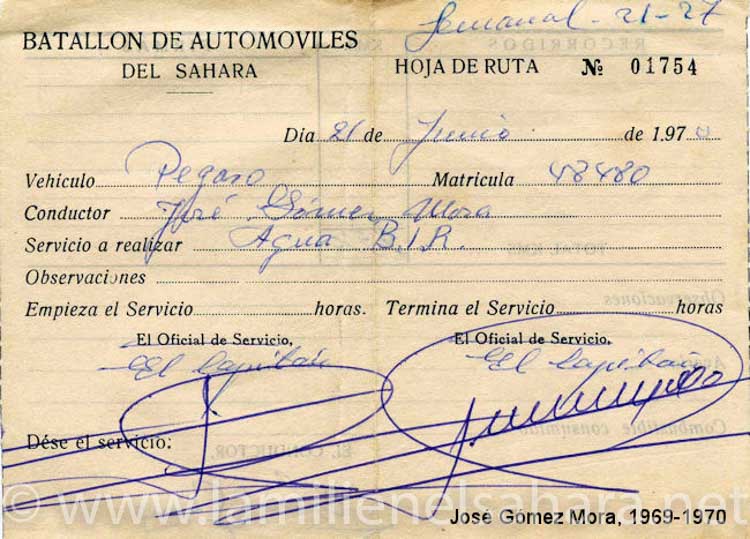 Semanal - 21-27
BATALLON DE AUTOMOVILES
DEL SAHARA
HOJA DE RUTA Nº 01754
Día 21 de Junio de 1.970
Vehículo Pegaso Matrícula 48480
Conductor José Gómez Mora
Servicio a realizar Agua B.I.R.
Observaciones
Empieza el Servicio horas. Termina el Servicio horas
El Oficial de Servicio, El Oficial de Servicio,
El Capitán El Capitán
Dése el servicio:
© www.lamilienelsahara.net
José Gómez Mora, 1969-1970